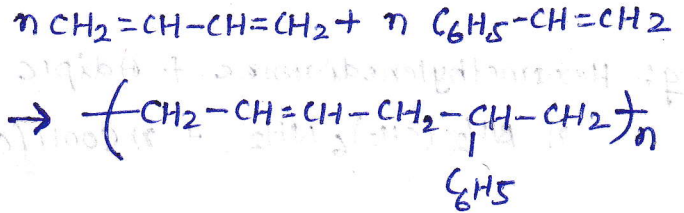 n CH2=CH-CH=CH2 + n C6H5-CH=CH2
→ (CH2-CH=CH-CH2-CH-CH2)n
C6H5